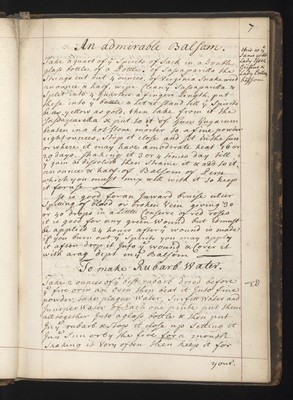 7
An admirable Balsam.
Take a quart of ye Spirits of Sack in a double
glass bottle, of a Bottle, of Sassaparilla the
Strings cut out 4 ounces, of Virginia Snake weed
an ounce & half, wipe Clean ye Sassaparilla &
Split into 4 quarters a fingers Length, put
these into ye bottle & let it stand till ye Spirits
be as yellow as gold, then take from it the
Sassaparilla & put to it of Gum Guaicum
beaten in a hot Stone morter to a fine powder
eight ounces, Stop it close and Set in the sun
or where it may have a moderate heat 16 or
20 dayes, Shaking it 3 or 4 times a day till
ye gum is dissolved then Straine it & add to it
an ounce & half of Balsom of Peru
which you must mix well with it so keep
it for use
It is good for an Inward bruise ulcer
Spitting of blood or broken Vein giving 30
or 40 drops in a Little Conserve of red roses
it is good for any green Wound but it must
be applied 24 hours after ye wound is made
if you burn out ye Spirits you may apply
it after drop it Into ye wound & Cover it
with a rag dipt in ye Balsom
this is ye
Same with
Lady
Balsom
Lady
Balsom
To make Rubarb Water.
Take 2 ounces of ye best rubarb dried before
ye fire or in an oven then beat it Into fine
powder, take plague Water, Surfeit Water and
Juniper Water of Each one pinte put them
all together Into a glass bottle & then put
in ye rubarb & Stop it close up Setting it
In ye Sun or by the fire for a month
Shaking it Very often then keep it for
your